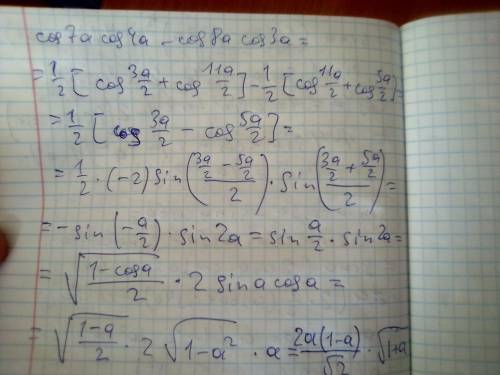 cos7a cos4a - cos8a cos3a =
= 1/2 [cos 3a/2 + cos 11a/2] - 1/2 [cos 11a/2 + cos 5a/2] =
= 1/2 [cos 3a/2 - cos 5a/2] =
= 1/2 · (-2) sin((3a/2 - 5a/2)/2) · sin((3a/2 + 5a/2)/2) =
= -sin(-a/2) · sin2a = sin a/2 · sin2a =
= √((1-cosa)/2) · 2 sina cosa =
= √((1-a)/2) · 2 √(1-a²) · a = 2a(1-a)/√2 · √(1+a)